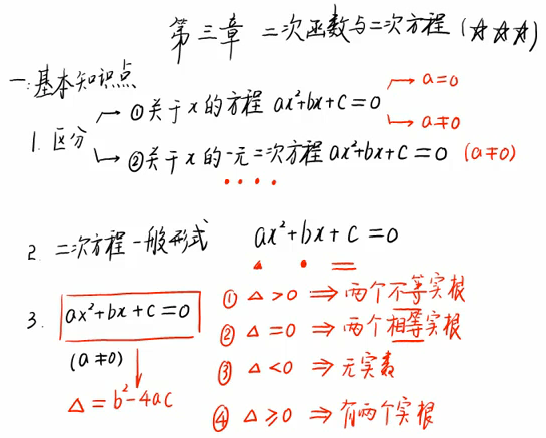 第三章 二次函数与二次方程 (☆☆☆)
一.基本知识点
1. 区分
→ ①关于x的方程 ax²+bx+c=0
→ a=0
→ a≠0
→ ②关于x的一元二次方程 ax²+bx+c=0 (a≠0)
2. 二次方程一般形式 ax²+bx+c=0
3. ax²+bx+c=0
(a≠0)
△=b²-4ac
① △>0 ⇒ 两个不等实根
② △=0 ⇒ 两个相等实根
③ △<0 ⇒ 无实
④ △≥0 ⇒ 有两个实根